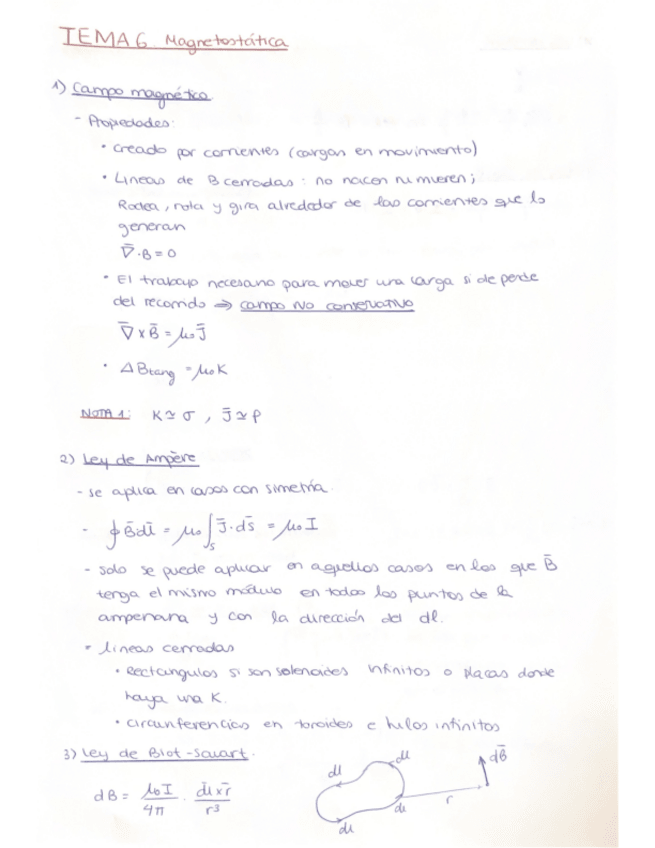 TEMA 6. Magnetostática
1) Campo magnético
- Propiedades:
• creado por corrientes (cargas en movimiento)
• Lineas de B cerradas: no nacen ni mueren;
Rodea, rota y gira alrededor de las corrientes que lo
generan
∇̄·B = 0
• El trabajo necesario para mover una carga si depende
del recorrido ⇒ campo no conservativo
∇̄ x B̄ = μ₀J̄
• ΔBtang = μ₀K
NOTA 1: K ≃ σ, J̄ ≃ ρ
2) Ley de Ampère
- se aplica en casos con simetría.
- ∮B̄dl̄ = μ₀∫ₛ J̄·ds̄ = μ₀I
- solo se puede aplicar en aquellos casos en los que B̄
tenga el mismo módulo en todos los puntos de la
amperiana y con la dirección del dl.
• lineas cerradas
• Rectangulos si son solenoides infinitos o placas donde
haya una K.
• circunferencias en toroides e hilos infinitos
3) Ley de Biot-Savart.
dB = μ₀I/4π · dl̄ x r̄/r³
dl
dl
dl
dl
r
dB̄